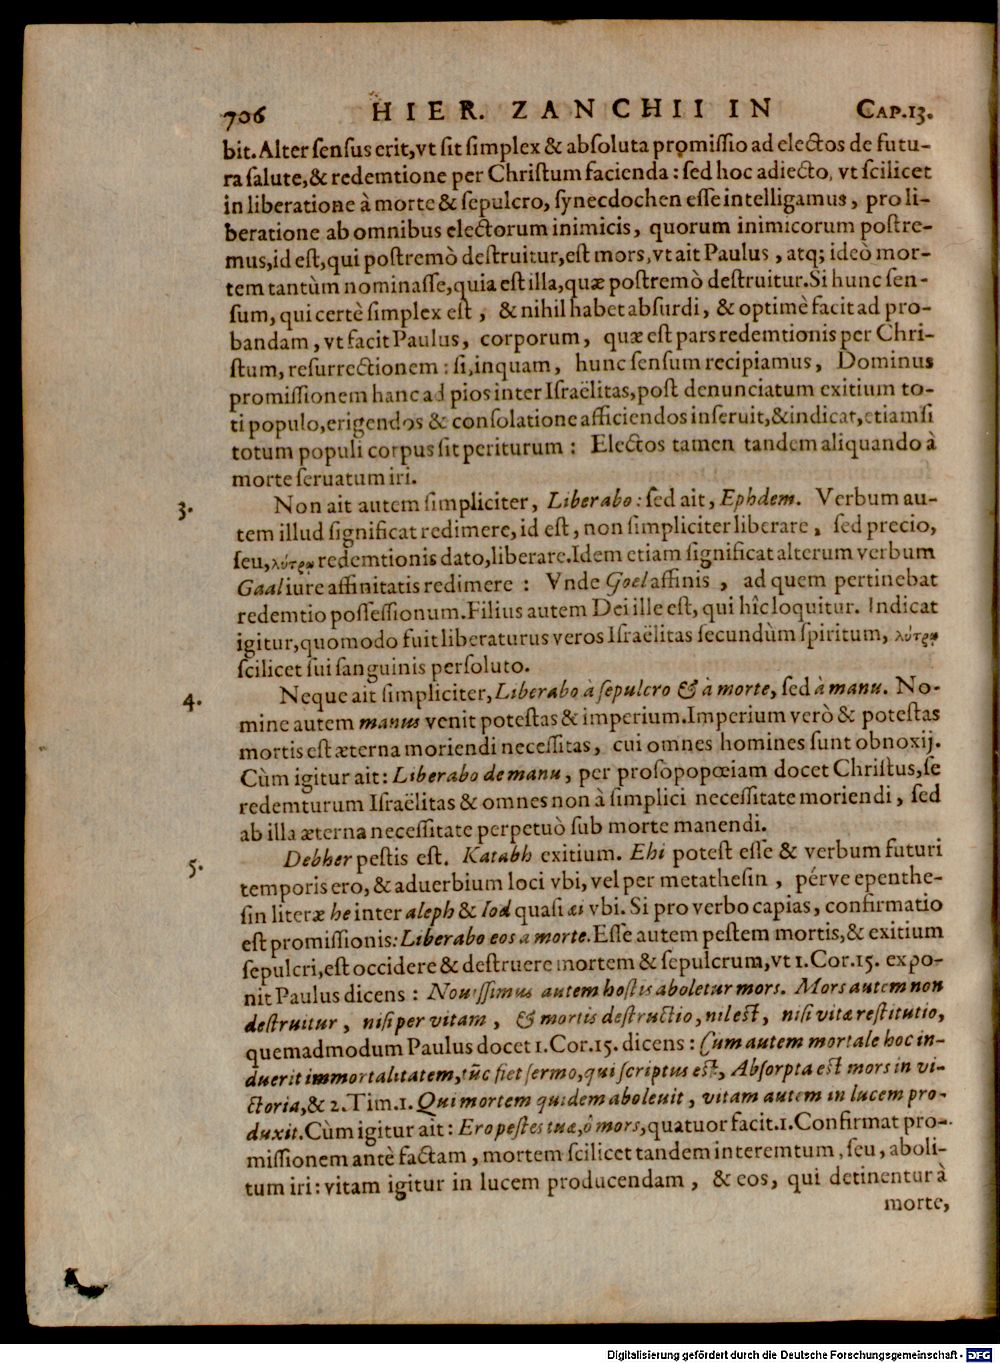 706 HIER. ZANCHII IN CAP.13.
bit. Alter ſenſus erit, vt ſit ſimplex & abſoluta promiſſio ad electos de futu-
ra ſalute, & redemtione per Chriſtum facienda: ſed hoc adiecto, vt ſcilicet
in liberatione à morte & ſepulcro, ſynecdochen eſſe intelligamus, pro li-
beratione ab omnibus electorum inimicis, quorum inimicorum poſtre-
mus, id eſt, qui poſtremò deſtruitur, eſt mors, vt ait Paulus, atq; ideò mor-
tem tantùm nominaſſe, quia eſt illa, quæ poſtremò deſtruitur. Si hunc ſen-
ſum, qui certè ſimplex eſt, & nihil habet abſurdi, & optimè facit ad pro-
bandam, vt facit Paulus, corporum, quæ eſt pars redemtionis per Chri-
ſtum, reſurrectionem: ſi, inquam, hunc ſenſum recipiamus, Dominus
promiſſionem hanc ad pios inter Iſraëlitas, poſt denunciatum exitium to-
ti populo, erigendos & conſolatione afficiendos inſeruit, & indicat, etiamſi
totum populi corpus ſit periturum: Electos tamen tandem aliquando à
morte ſeruatum iri.
3. Non ait autem ſimpliciter, Liberabo: ſed ait, Ephdem. Verbum au-
tem illud ſignificat redimere, id eſt, non ſimpliciter liberare, ſed precio,
ſeu, λύτρῳ redemtionis dato, liberare. Idem etiam ſignificat alterum verbum
Gaal iure affinitatis redimere: Vnde Goel affinis, ad quem pertinebat
redemtio poſſeſſionum. Filius autem Dei ille eſt, qui hîc loquitur. Indicat
igitur, quomodo fuit liberaturus veros Iſraëlitas ſecundùm ſpiritum, λύτρῳ
ſcilicet ſui ſanguinis perſoluto.
4. Neque ait ſimpliciter, Liberabo à ſepulcro & à morte, ſed à manu. No-
mine autem manus venit poteſtas & imperium. Imperium verò & poteſtas
mortis eſt æterna moriendi neceſſitas, cui omnes homines ſunt obnoxij.
Cùm igitur ait: Liberabo de manu, per proſopopœiam docet Chriſtus, ſe
redemturum Iſraëlitas & omnes non à ſimplici neceſſitate moriendi, ſed
ab illa æterna neceſſitate perpetuò ſub morte manendi.
5. Debher peſtis eſt. Katabh exitium. Ehi poteſt eſſe & verbum futuri
temporis ero, & aduerbium loci vbi, vel per metatheſin, pérve epenthe-
ſin literæ he inter aleph & Iod quaſi æi vbi. Si pro verbo capias, confirmatio
eſt promiſſionis: Liberabo eos a morte. Eſſe autem peſtem mortis, & exitium
ſepulcri, eſt occidere & deſtruere mortem & ſepulcrum, vt 1. Cor. 15. expo-
nit Paulus dicens: Nouiſſimus autem hoſtis aboletur mors. Mors autem non
deſtruitur, niſi per vitam, & mortis deſtructio, nil eſt, niſi vitæ reſtitutio,
quemadmodum Paulus docet 1. Cor. 15. dicens: Cum autem mortale hoc in-
duerit immortalitatem, tūc fiet ſermo, qui ſcriptus eſt, Abſorpta eſt mors in vi-
ctoria, & 2. Tim. 1. Qui mortem quidem aboleuit, vitam autem in lucem pro-
duxit. Cùm igitur ait: Ero peſtes tuæ, ô mors, quatuor facit. 1. Confirmat pro-
miſſionem antè factam, mortem ſcilicet tandem interemtum, ſeu, aboli-
tum iri: vitam igitur in lucem producendam, & eos, qui detinentur à
morte,
Digitalisierung gefördert durch die Deutsche Forschungsgemeinschaft - DFG